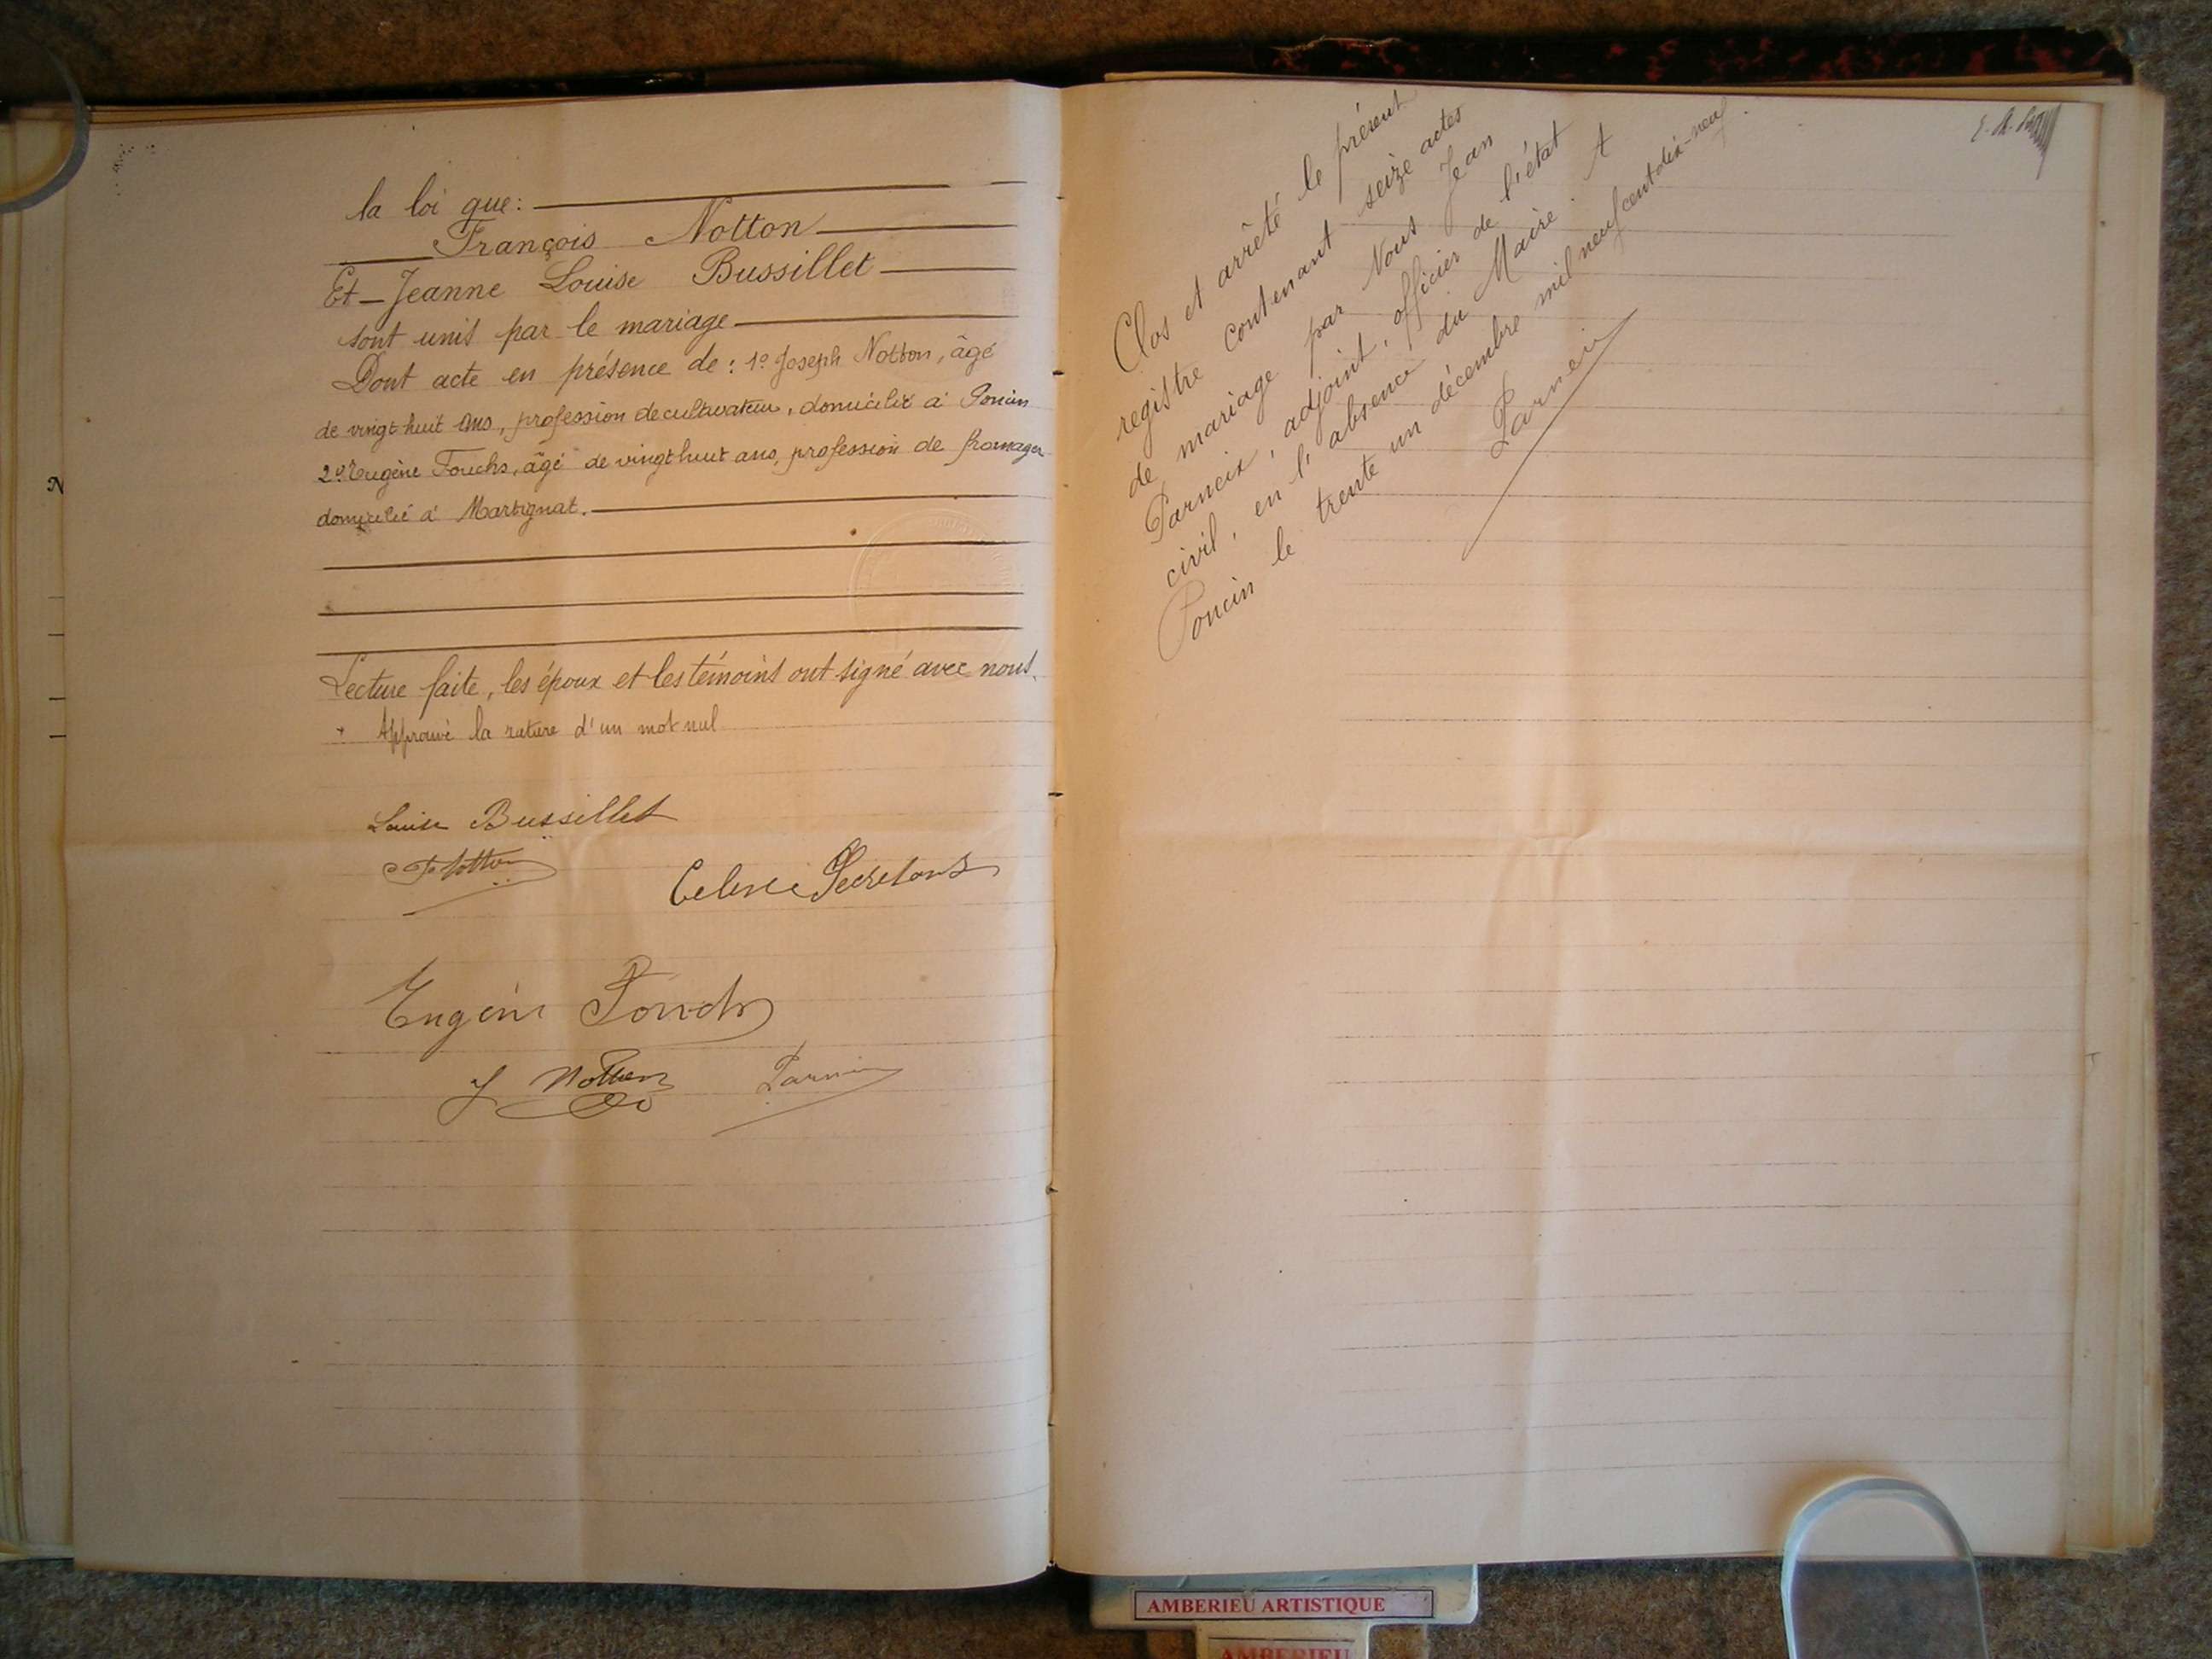 la loi que:
François Notton
Et Jeanne Louise Bussillet
sont unis par le mariage
Dont acte en présence de : 1º Joseph Notton, âgé
de vingt huit ans, profession de cultivateur, domicilié à Poncin
2º Eugène Fouchs, âgé de vingt huit ans, profession de fromager
domicilié à Martignat.
Lecture faite, les époux et les témoins ont signé avec nous.
+ Approuvé la rature d'un mot nul
Louise Bussillet
F Notton
Secretans
Eugène
J Notton
Clos et arrêté le présent
registre contenant seize actes
de mariage par Nous Jean
Parneix, adjoint, officier de l'état
civil, en l'absence du Maire. A
Poncin le trente un décembre mil neuf cent dix-neuf.
Parneix
N
AMBERIEU ARTISTIQUE
AMBERIEU